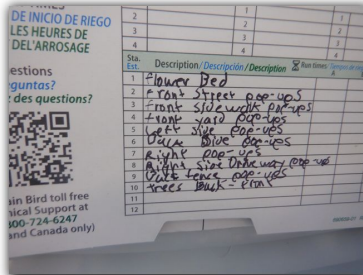 DE INICIO DE RIEGO
LES HEURES DE
DEL'ARROSAGE
1
2
3
4
1
2
3
4
estions
guntas?
des questions?
ain Bird toll free
nical Support at
800-724-6247
and Canada only)
Sta.
Est.
Description / Descripción / Description
Run times
1 Flower Bed
2 Front Street pop-ups
3 Front sidewalk pop-ups
4 Front yard pop-ups
5 Left side pop-ups
6 Side pop-ups
7 Right pop-ups
8 Right side Driveway pop-ups
9 fence pop-ups
10 Trees Back - Front
11
12